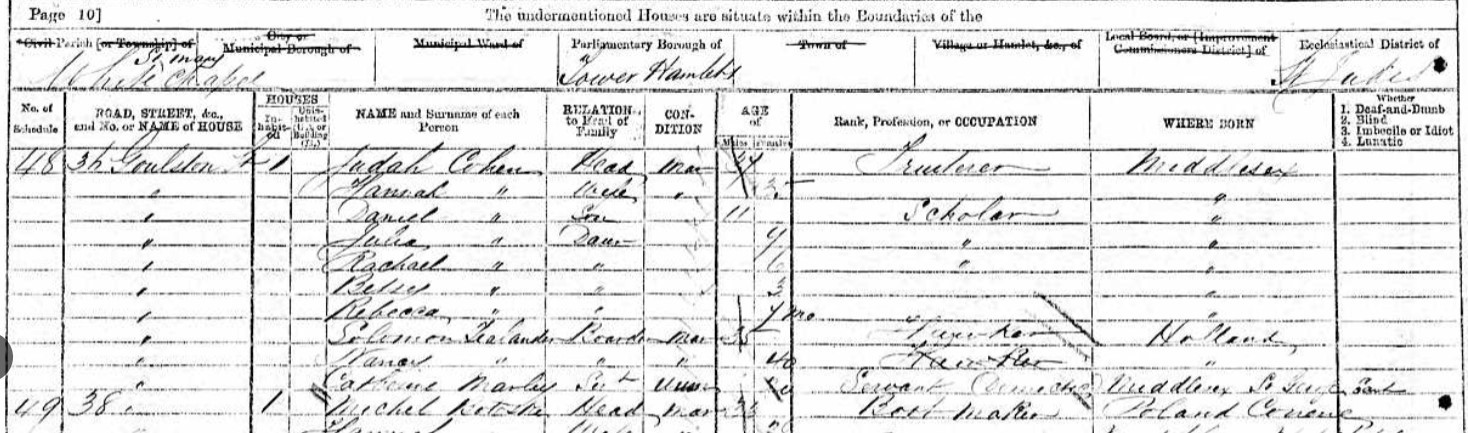 Page 10] The undermentioned Houses are situate within the Boundaries of the
Civil Parish [or Township] of City or Municipal Borough of Municipal Ward of Parliamentary Borough of Town of Village or Hamlet, &c., of Local Board, or [Improvement Commissioners District] of Ecclesiastical District of
St Mary Whitechapel Tower Hamlets St Judes
No. of Schedule ROAD, STREET, &c., and No. or NAME of HOUSE HOUSES Inhabited Uninhabited (U.), or Building (B.) NAME and Surname of each Person RELATION to Head of Family CONDITION AGE of Males Females Rank, Profession, or OCCUPATION WHERE BORN Whether 1. Deaf-and-Dumb 2. Blind 3. Imbecile or Idiot 4. Lunatic
48 36 Goulston St 1 Judah Cohen Head Mar 37 Fruiterer Middlesex
" Hannah " Wife " 35 "
" Daniel " Son 11 Scholar "
" Julia " Daur 9 " "
" Rachael " " 6 " "
" Betsy " " 3 "
" Rebecca " " 7 mo "
" Solomon Boarder Mar 35 Hawker Holland
" Nancy " " " 40 Hawker "
" Catherine Marley Sert Unm Servant Domestic Middlesex St
49 38 " 1 Michel Head Mar Boot Maker Poland
Hannah Wife